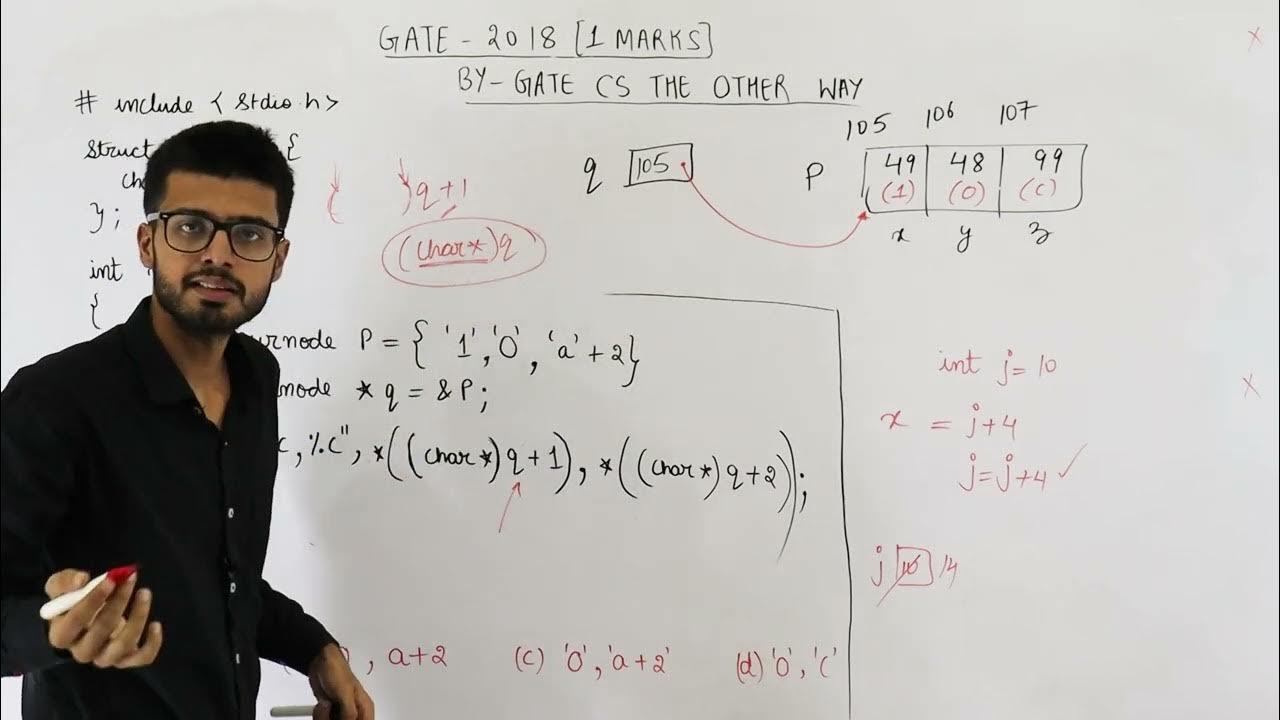 GATE - 2018 [1 MARKS]
BY - GATE CS THE OTHER WAY
# include < Stdio.h>
Struct {
};
int
{
P = { '1','0', 'a' + 2}
node * q = & P;
, %c", *((char*) q + 1), *((char*) q + 2));
, a+2 (c) '0', 'a+2' (d) '0', 'c'
( ) q + 1
(char*) q
q 105
105 106 107
P 49 48 99
(1) (0) (c)
x y z
int j = 10
x = j + 4
j = j + 4 ✓
j 10 14
x
x